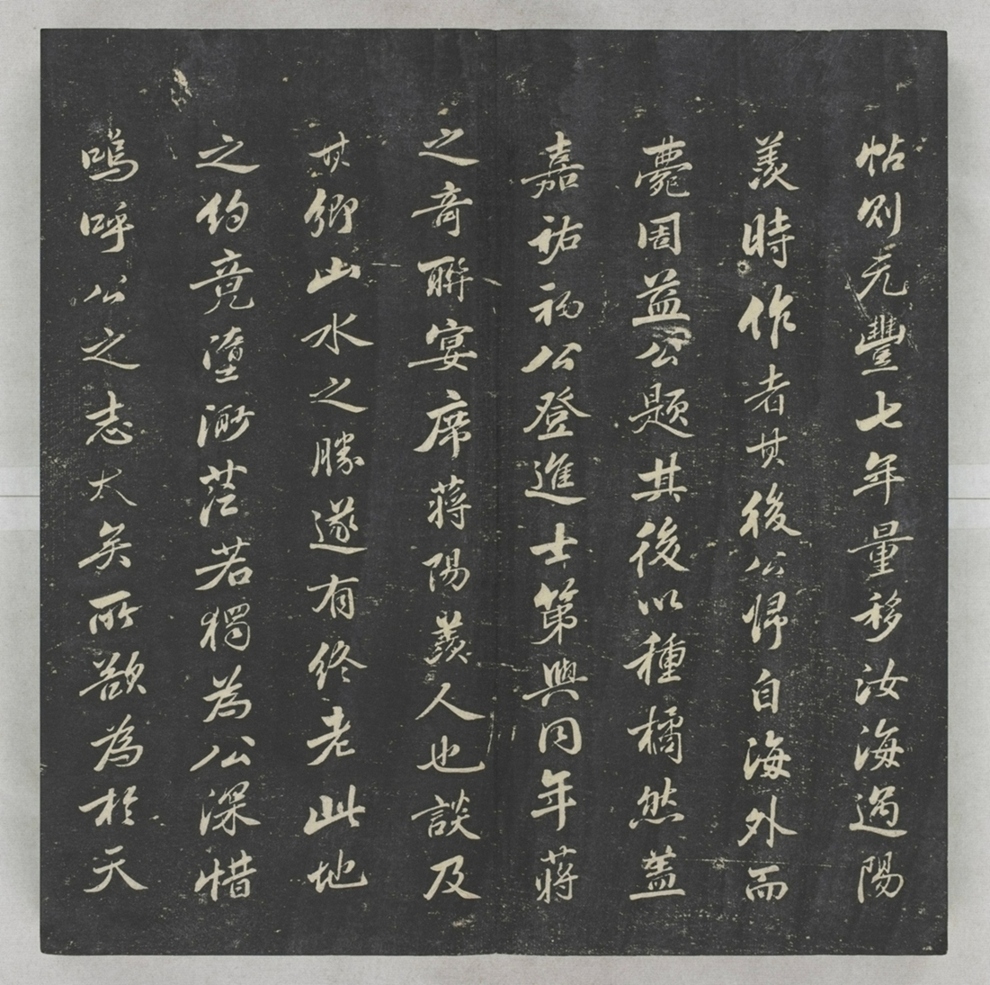 帖則元豐七年量移汝海過陽
羡時作者其後公歸自海外而
薨周益公題其後以種橘然蓋
嘉祐初公登進士第與同年蔣
之奇聯宴席蔣陽羨人也談及
其鄉山水之勝遂有終老此地
之約竟墮渺茫若獨為公深惜
嗚呼公之志大矣所欲為於天